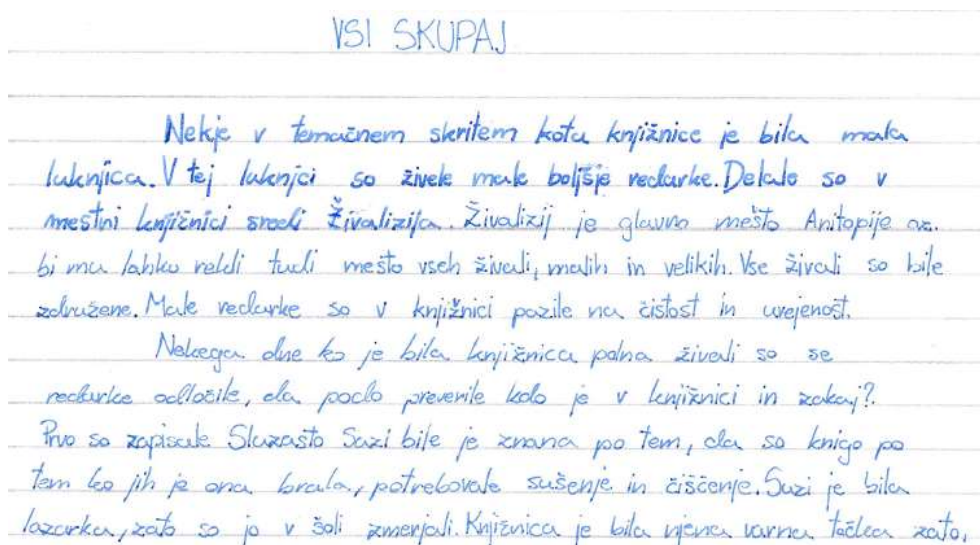 VSI SKUPAJ
Nekje v temačnem skritem kotu knjižnice je bila mala
luknjica. V tej luknjici so živele male boljšje redarke. Delale so v
mestni knjižnici sredi Živalizija. Živalizij je glavno mesto Anitopije oz.
bi mu lahko rekli tudi mesto vseh živali, malih in velikih. Vse živali so bile
združene. Male redarke so v knjižnici pazile na čistost in urejenost.
Nekega dne ko je bila knjižnica polna živali so se
redarke odločile, da podo preverile kdo je v knjižnici in zakaj?.
Prvo so zapisale Sluzasto Suzi bile je znana po tem, da so knige po
tem ko jih je ona brala, potrebovale sušenje in čiščenje. Suzi je bila
lazarka, zato so jo v šoli zmerjali. Knjižnica je bila njena varna točka zato,